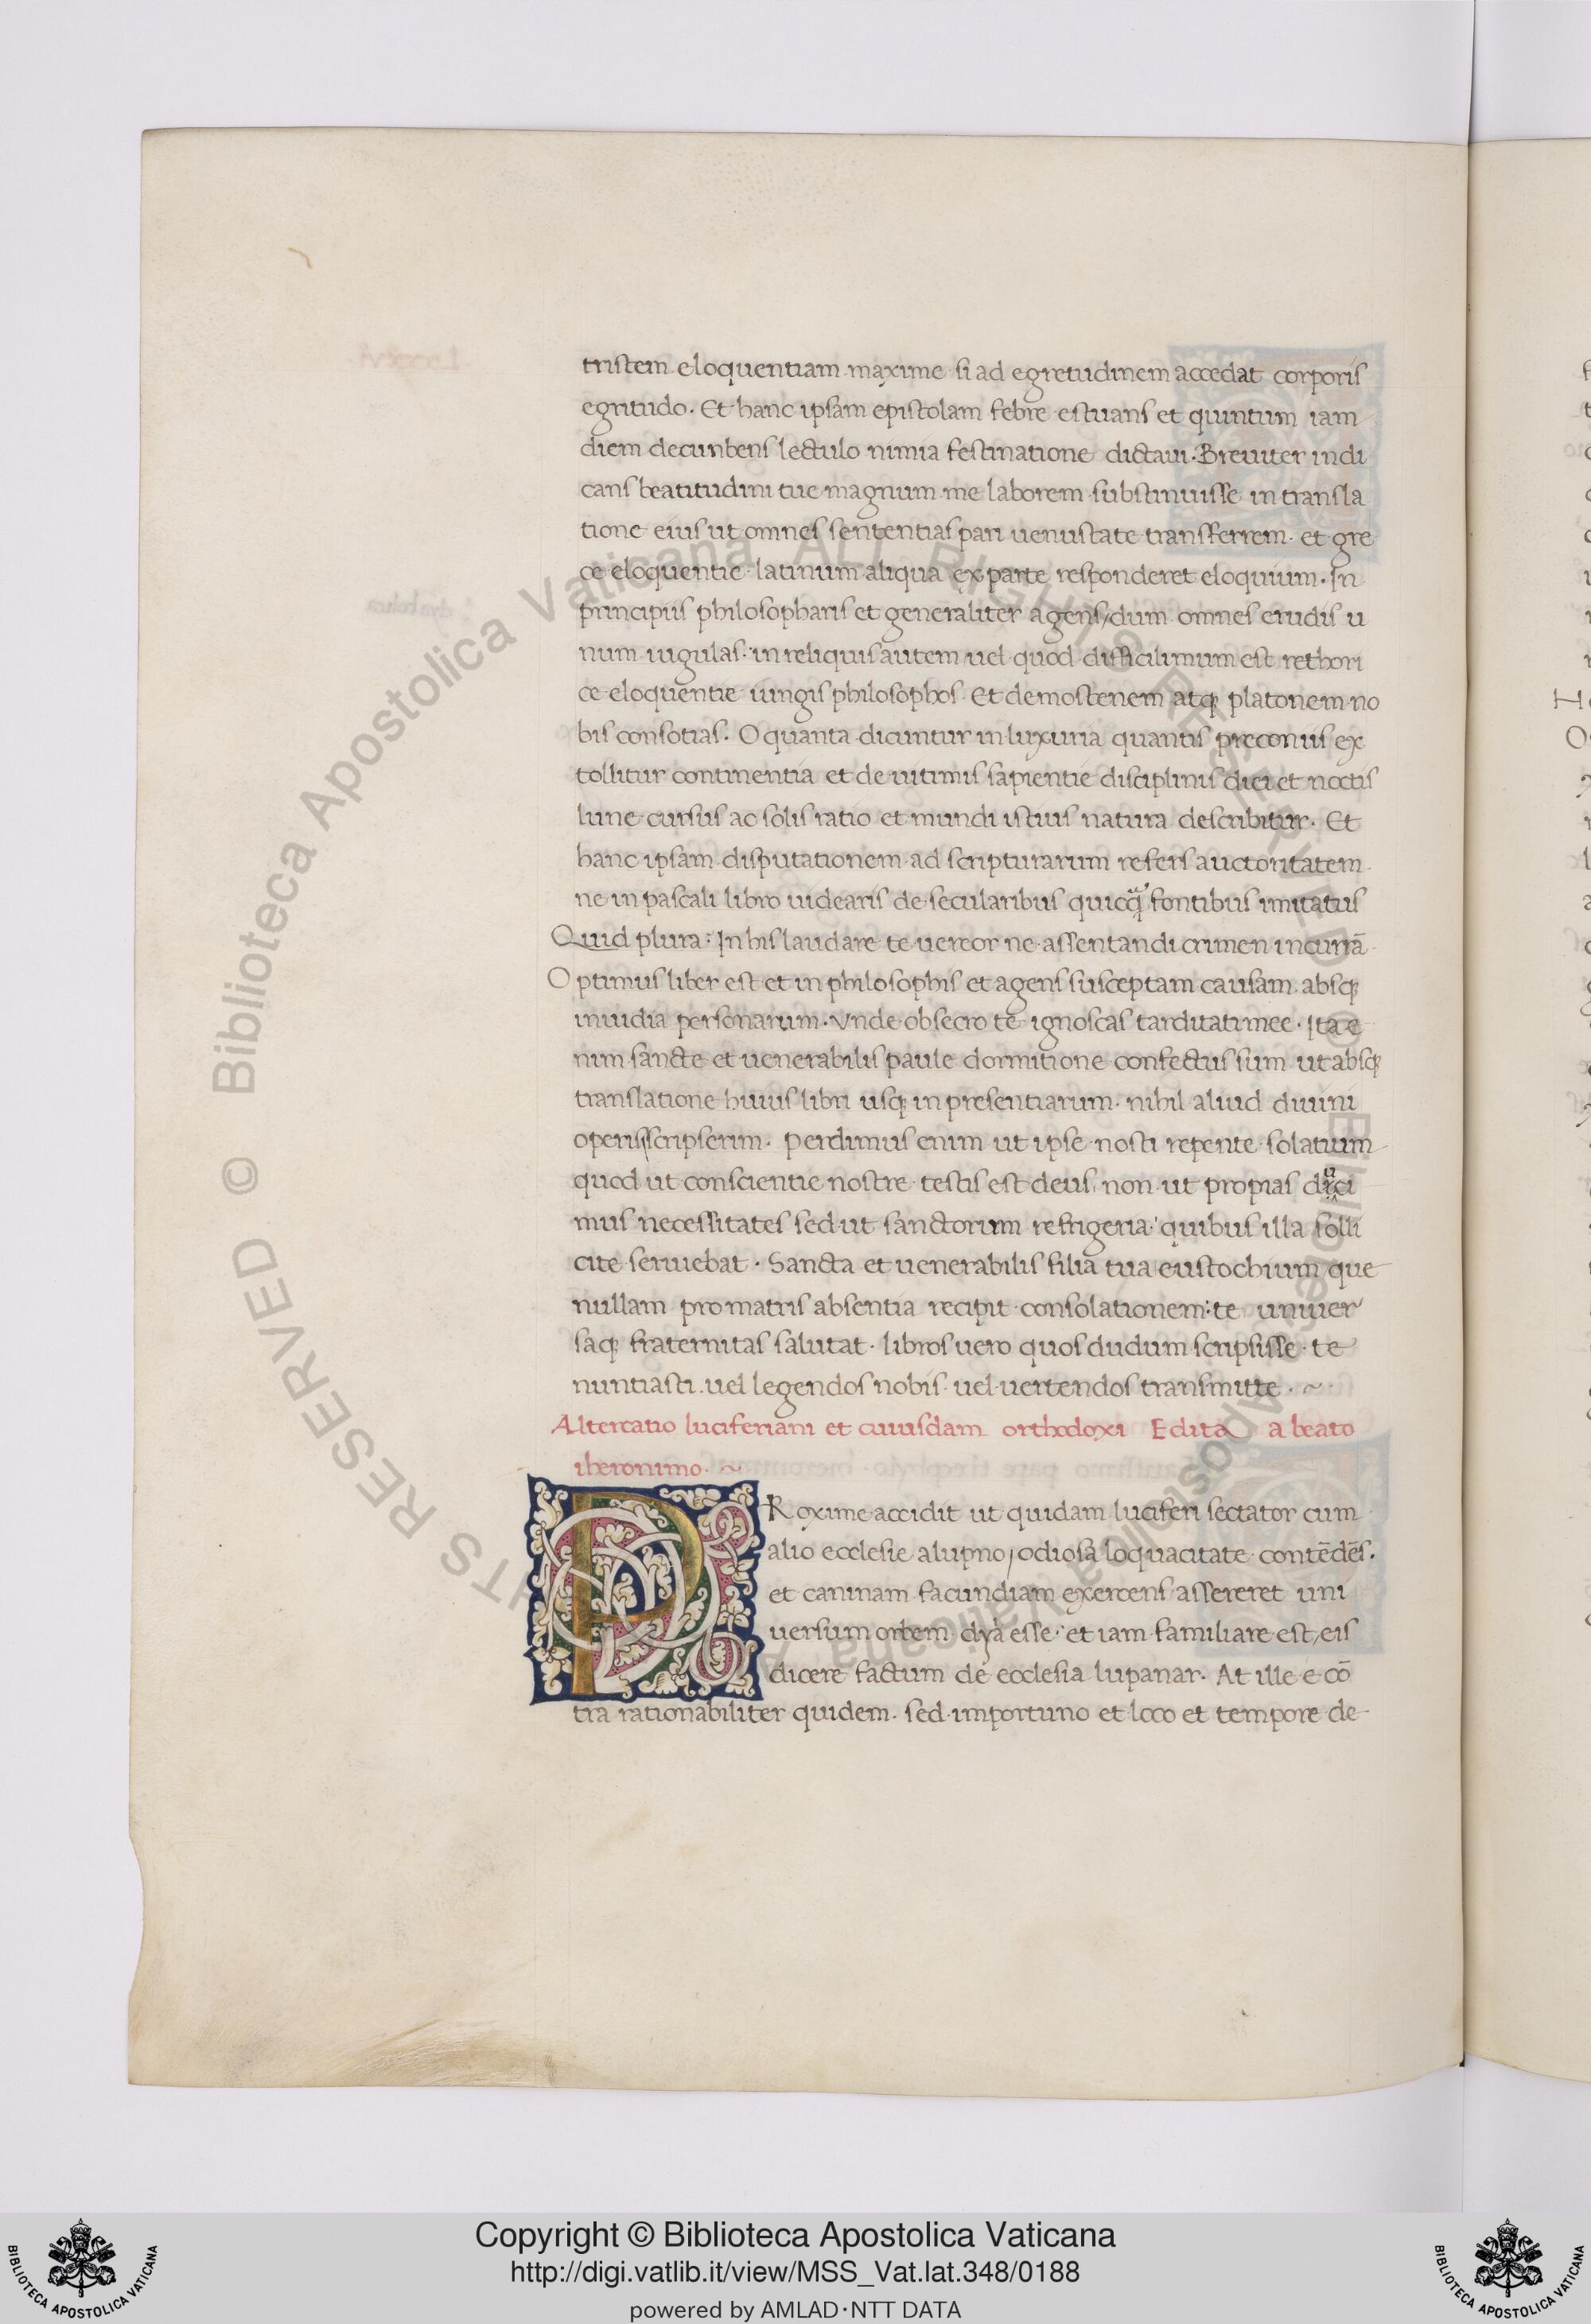 tristem eloquentiam maxime si ad egretudinem accedat corporis
egritudo. Et hanc ipsam epistolam febre estuans et quintum iam
diem decunbens lectulo nimia festinatione dictaui. Breuiter indi
cans beatitudini tue magnum me laborem substinuisse in transla
tione eius ut omnes sententias pari uenustate transferrem. et gre
ce eloquentie latinum aliqua ex parte responderet eloquium. In
principiis philosopharis et generaliter agens / dum omnes erudis u
num iugulas. in reliquis autem uel quod difficilimum est rethori
ce eloquentie iungis philosophos. Et demostenem atqȝ platonem no
bis consotias. O quanta dicuntur in luxuria quantis preconiis ex
tollitur continentia et de intimis sapientie disciplinis diei et noctis
lune cursus ac solis ratio et mundi istius natura describitur. Et
hanc ipsam disputationem ad scripturarum refers auctoritatem
ne in pascali libro uidearis de secularibus quicq̃ fontibus imitatus
Quid plura: In his laudare te uereor ne assentandi crimen incurrā
Optimus liber est et in philosophis et agens susceptam causam absqȝ
inuidia personarum. Vnde obsecro te ignoscas tarditati mee. Ita e
nim sancte et uenerabilis paule dormitione confectus sum ut absqȝ
translatione huius libri usqȝ in presentiarum. nihil aliud diuini
operis scripserim. perdimus enim ut ipse nosti repente solatium
quod ut conscientie nostre testis est deus, non ut propias duci
mus necessitates sed ut sanctorum refrigeria. quibus illa solli
cite seruiebat. Sancta et uenerabilis filia tua eustochium que
nullam pro matris absentia recipit consolationem: te uniuer
saqȝ fraternitas salutat. libros uero quos dudum scripsisse te
nuntiasti. uel legendos nobis uel uertendos transmitte. ~
Altercatio luciferiani et cuiusdam orthodoxi Edita a beato
iheronimo. ~
PRoxime accidit ut quidam luciferi sectator cum
alio ecclesie alupno, odiosa loquacitate contēdēs.
et caninam facundiam exercens assereret uni
uersum orbem dya esse. et iam familiare est, eis
dicere factum de ecclesia lupanar. At ille e cō
tra rationabiliter quidem. sed importuno et loco et tempore de
Copyright © Biblioteca Apostolica Vaticana
http://digi.vatlib.it/view/MSS_Vat.lat.348/0188
powered by AMLAD·NTT DATA
BIBLIOTECA APOSTOLICA VATICANA
BIBLIOTECA APOSTOLICA VATICANA
© Biblioteca Apostolica Vaticana ALL RIGHTS RESERVED